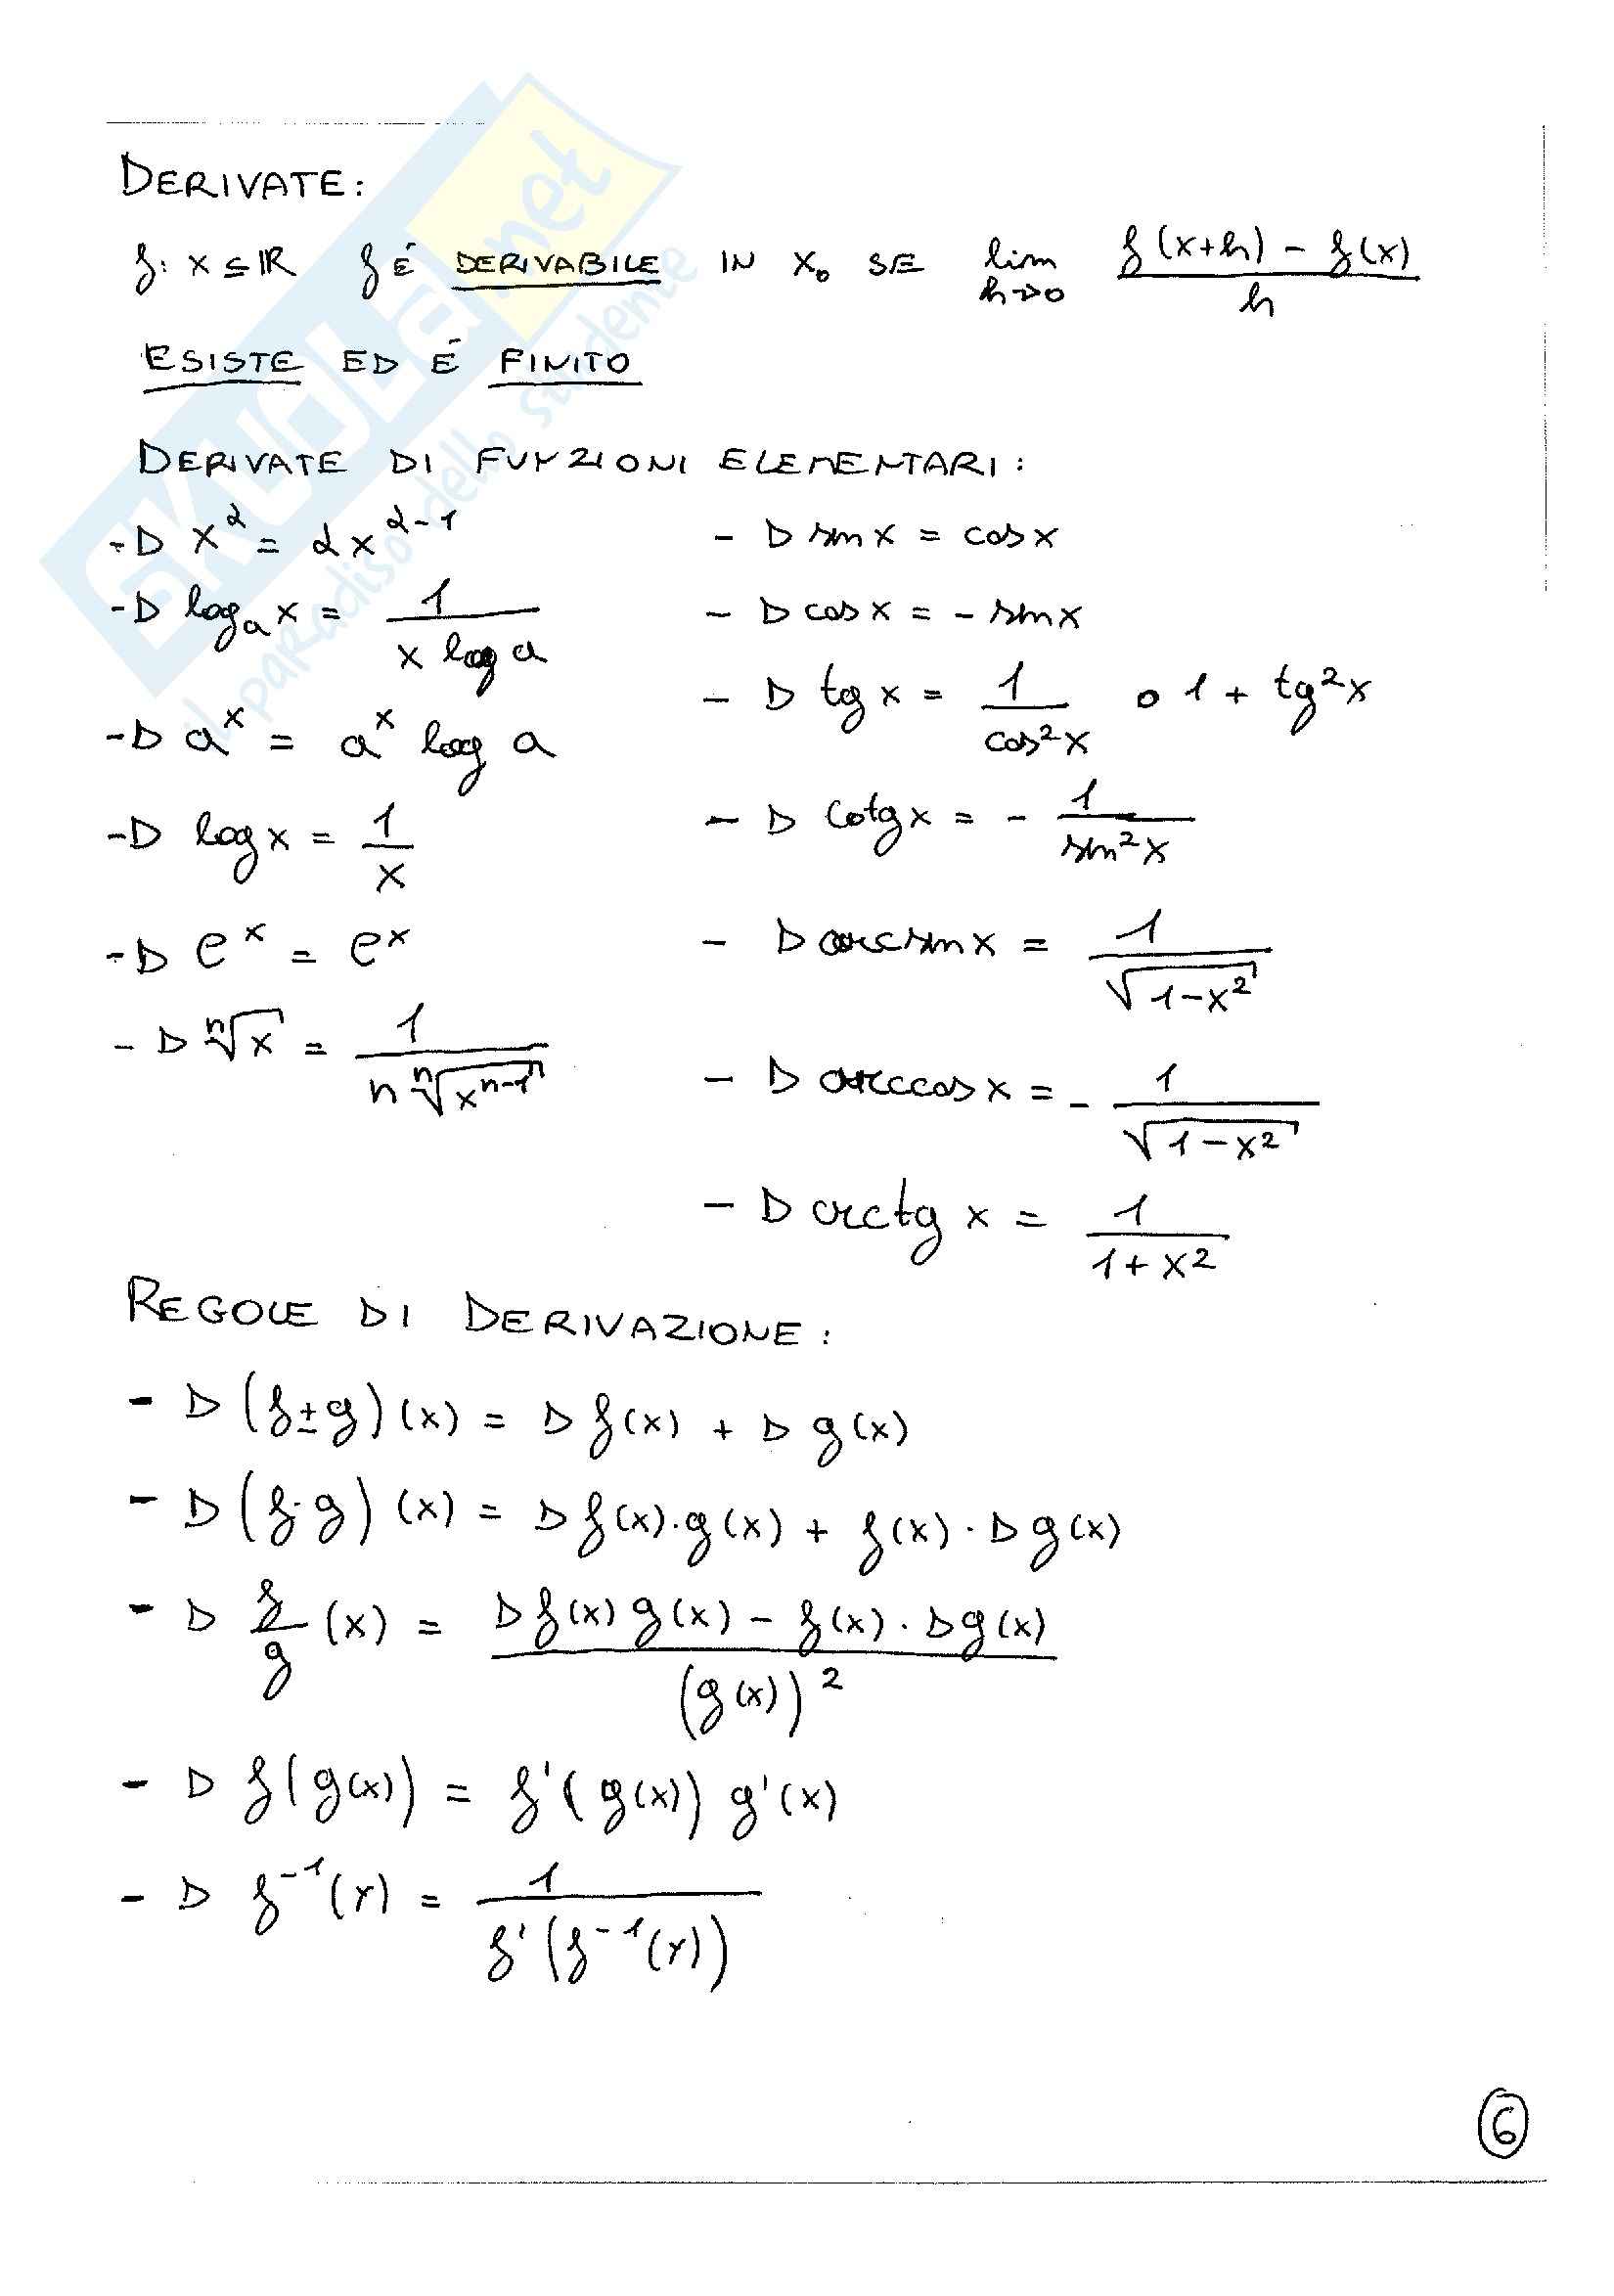 SKUOLA.net
il paradiso dello studente
DERIVATE:
f: X ⊆ ℝ f É DERIVABILE IN X₀ SE lim h→0 f(x+h) - f(x) / h
ESISTE ED É FINITO
DERIVATE DI FUNZIONI ELEMENTARI:
- D x^α = αx^(α-1)
- D log_a x = 1 / (x log a)
- D a^x = a^x log a
- D log x = 1/x
- D e^x = e^x
- D ⁿ√x = 1 / (n ⁿ√(x^(n-1)))
- D sin x = cos x
- D cos x = - sin x
- D tg x = 1 / cos²x o 1 + tg²x
- D cotg x = - 1 / sin²x
- D arcsin x = 1 / √(1-x²)
- D arccos x = - 1 / √(1-x²)
- D arctg x = 1 / (1+x²)
REGOLE DI DERIVAZIONE:
- D (f±g)(x) = D f(x) + D g(x)
- D (f·g)(x) = D f(x)·g(x) + f(x)·D g(x)
- D f/g (x) = (D f(x) g(x) - f(x)·D g(x)) / (g(x))²
- D f(g(x)) = f'(g(x)) g'(x)
- D f⁻¹(y) = 1 / f'(f⁻¹(y))
6